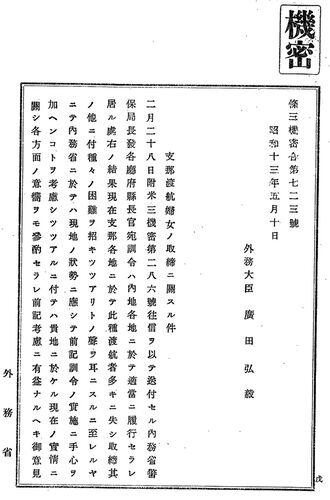 機密
條三機密合第七二三號
昭和十三年五月十日
外務大臣 廣田弘毅
支那渡航婦女ノ取締ニ關スル件
二月二十八日附米三機密第二八六號往信ヲ以テ送付セル內務省警
保局長發各廳府縣長官宛訓令ハ內地各地ニ於テ適當ニ履行セラレ
居ル處右ノ結果現在支那各地ニ於テ此種渡航者多キニ失シ取締其
ノ他ニ付種々ノ困難ヲ招キツツアリトノ聲ヲ耳ニスルニ至レルヤ
ニテ內務省ニ於テハ現地ノ狀勢ニ應シテ前記訓令ノ實施ニ手心ヲ
加ヘンコトヲ考慮シツツアルニ付テハ貴地ニ於ケル現在ノ實情ニ
關シ各方面ノ意嚮ヲモ參酌セラレ前記考慮ニ有益ナルヘキ御意見
外務省